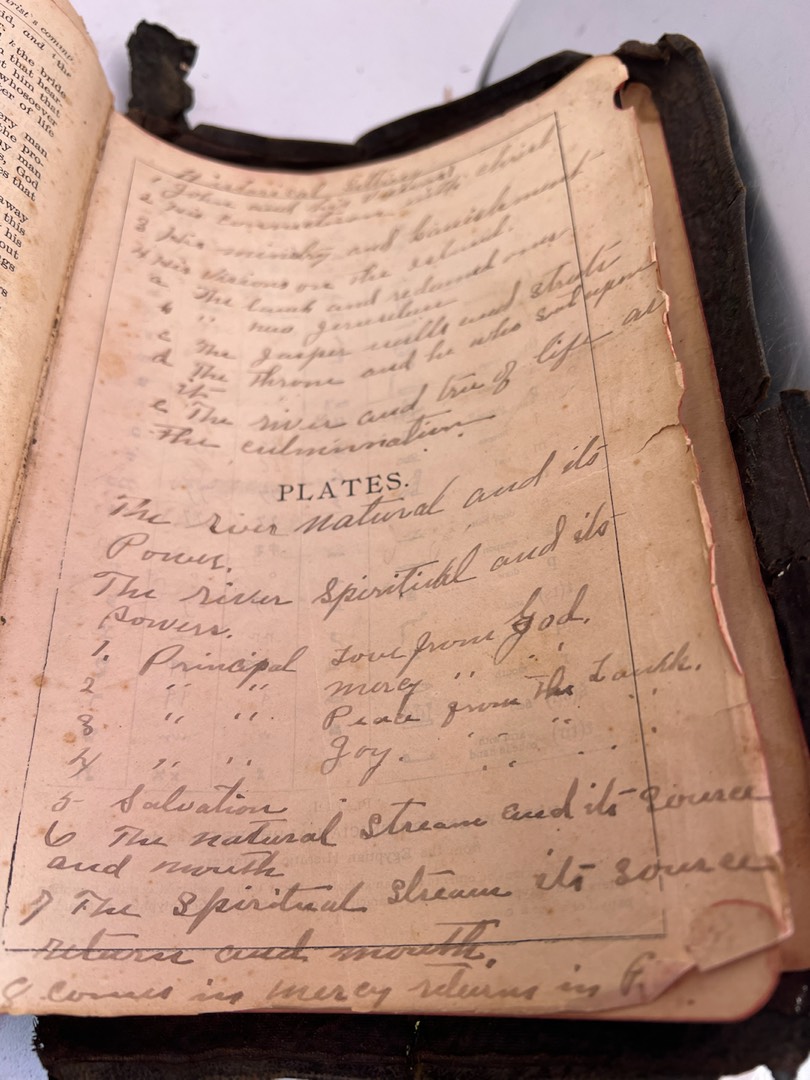 rist's comma
id, and the
the bride
n that hear
t him that
whosoever
er or life
ery man
the pro-
y man
s, God
es that
away
this
his
out
ngs
rs
Historical Setting
1 John and his
2 His connection with christ
3 His ministry and banishment
4 His visions on the island.
a The Lamb and redeemed ones
b " new Jerusalem
c The Jasper walls and streets
d The throne and he who sat upon
it
e The river and tree of life as
the culminnation.
PLATES.
The river natural and its
Power.
The river Spiritual and its
Powers.
1. Principal Love from God.
2 " " mercy " "
3 " " Peace from the Lamb.
4 " " Joy. " " "
5 Salvation
6 The natural Stream and its source
and mouth
7 The Spiritual Stream its source
return and mouth.
comes in mercy returns in